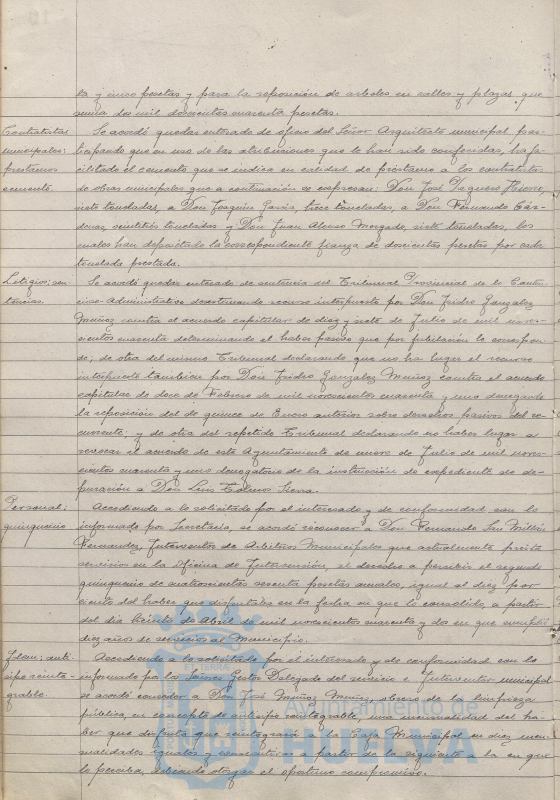 ta y cinco pesetas y para la reposición de arboles en calles y plazas que
suma de mil doscientos cuarenta pesetas.
Contratistas
municipales:
prestamos
cemento.
Se acordó quedar enterado de oficio del Señor Arquitecto municipal par-
ticipando que en uso de las atribuciones que le han sido conferidas, ha fa-
cilitado el cemento que se indica en calidad de préstamo a los contratistas
de obras municipales que a continuación se expresan: Don José Vaquero
siete toneladas, a Don Joaquin Garcia, trece toneladas, a Don Fernando Cár-
denas, veintitrés toneladas y Don Juan Alonso Morgado, siete toneladas, los
cuales han depositado la correspondiente fianza de doscientas pesetas por cada
tonelada prestada.
Litigios: sen-
tencias.
Se acordó quedar enterado de sentencia del Tribunal Provincial de lo Conten-
cioso-Administrativo desestimando recurso interpuesto por Don Isidro Gonzalez
Muñoz contra el acuerdo capitular de diez y siete de Julio de mil nove-
cientos cuarenta determinando el haber pasivo que por jubilación le correspon-
de; de otra del mismo Tribunal declarando que no ha lugar el recurso
interpuesto tambien por Don Isidro Gonzalez Muñoz contra el acuerdo
capitular de doce de Febrero de mil novecientos cuarenta y uno denegando
la reposición del de quince de Enero anterior sobre derechos pasivos del re-
currente; y de otra del repetido Tribunal declarando no haber lugar a
revocar el acuerdo de este Ayuntamiento de nueve de Julio de mil nove-
cientos cuarenta y uno denegatorio de la instrucción de expediente de de-
puración a Don Luis Sierra.
Personal:
quinquenio
Accediendo a lo solicitado por el interesado y de conformidad con lo
informado por Secretaría, se acordó reconocer a Don Fernando San Millán
Fernandez, Interventor de Arbitrios Municipales que actualmente presta
servicio en la Oficina de Intervención, el derecho a percibir el segundo
quinquenio de cuatrocientas sesenta pesetas anuales, igual al diez por
ciento del haber que disfrutaba en la fecha en que lo consolidó, a partir
del dia treinta de Abril de mil novecientos cuarenta y dos en que cumplió
diez años de servicios al Municipio.
Idem: anti-
cipo reinte-
grable.
Accediendo a lo solicitado por el interesado y de conformidad con lo
informado por los Señores Gestor Delegado del servicio e Interventor municipal
se acordó conceder a Don José Muñoz Muñoz, obrero de la limpieza
pública, en concepto de anticipo reintegrable, una mensualidad del ha-
ber que disfruta que reintegrará a la Caja Municipal en diez men-
sualidades iguales y consecutivas a partir de la siguiente a la en que
lo perciba, debiendo otorgar el oportuno compromiso.
Ayuntamiento de
HUELVA